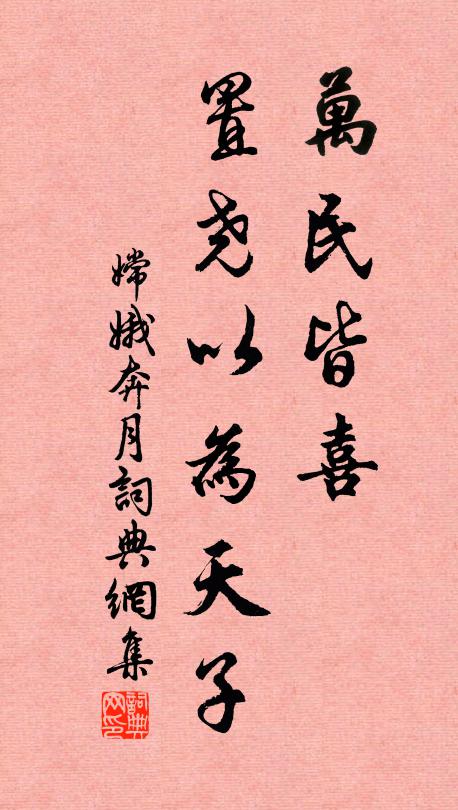 萬民皆喜
置尧以為天子
嫦娥奔月詞典網集
詞典
网印